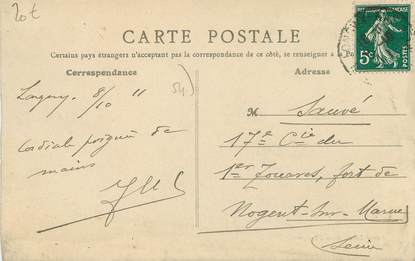 20€
CARTE POSTALE
Certains pays étrangers n'acceptant pas la correspondance de ce côté, se renseigner à
Correspondance
Adresse
5c
8/10 11
54
cordiale poignée de
mains
M Sauvé
17e Cie du
1er Zouaves, fort de
Nogent-sur-Marne
(Seine)